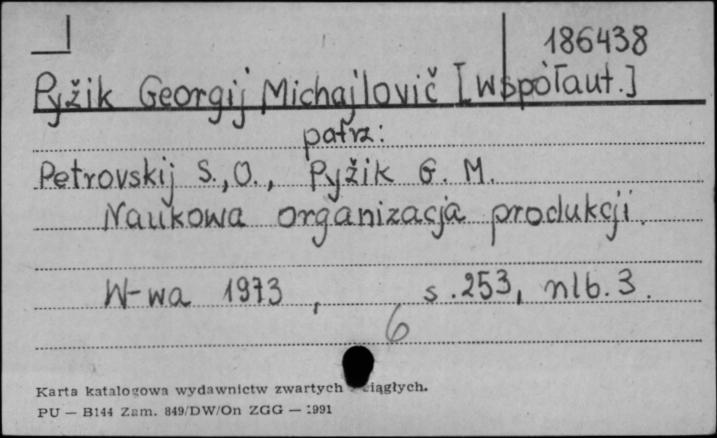 186438
Pyžik Georgij Michajlovič [współaut.]
patrz:
Petrovskij S., O., Pyžik G. M.
Naukowa organizacja produkcji.
W-wa 1973, s. 253, nlb. 3.
6
Karta katalogowa wydawnictw zwartych ciągłych.
PU — B144 Zam. 849/DW/On ZGG — 1991